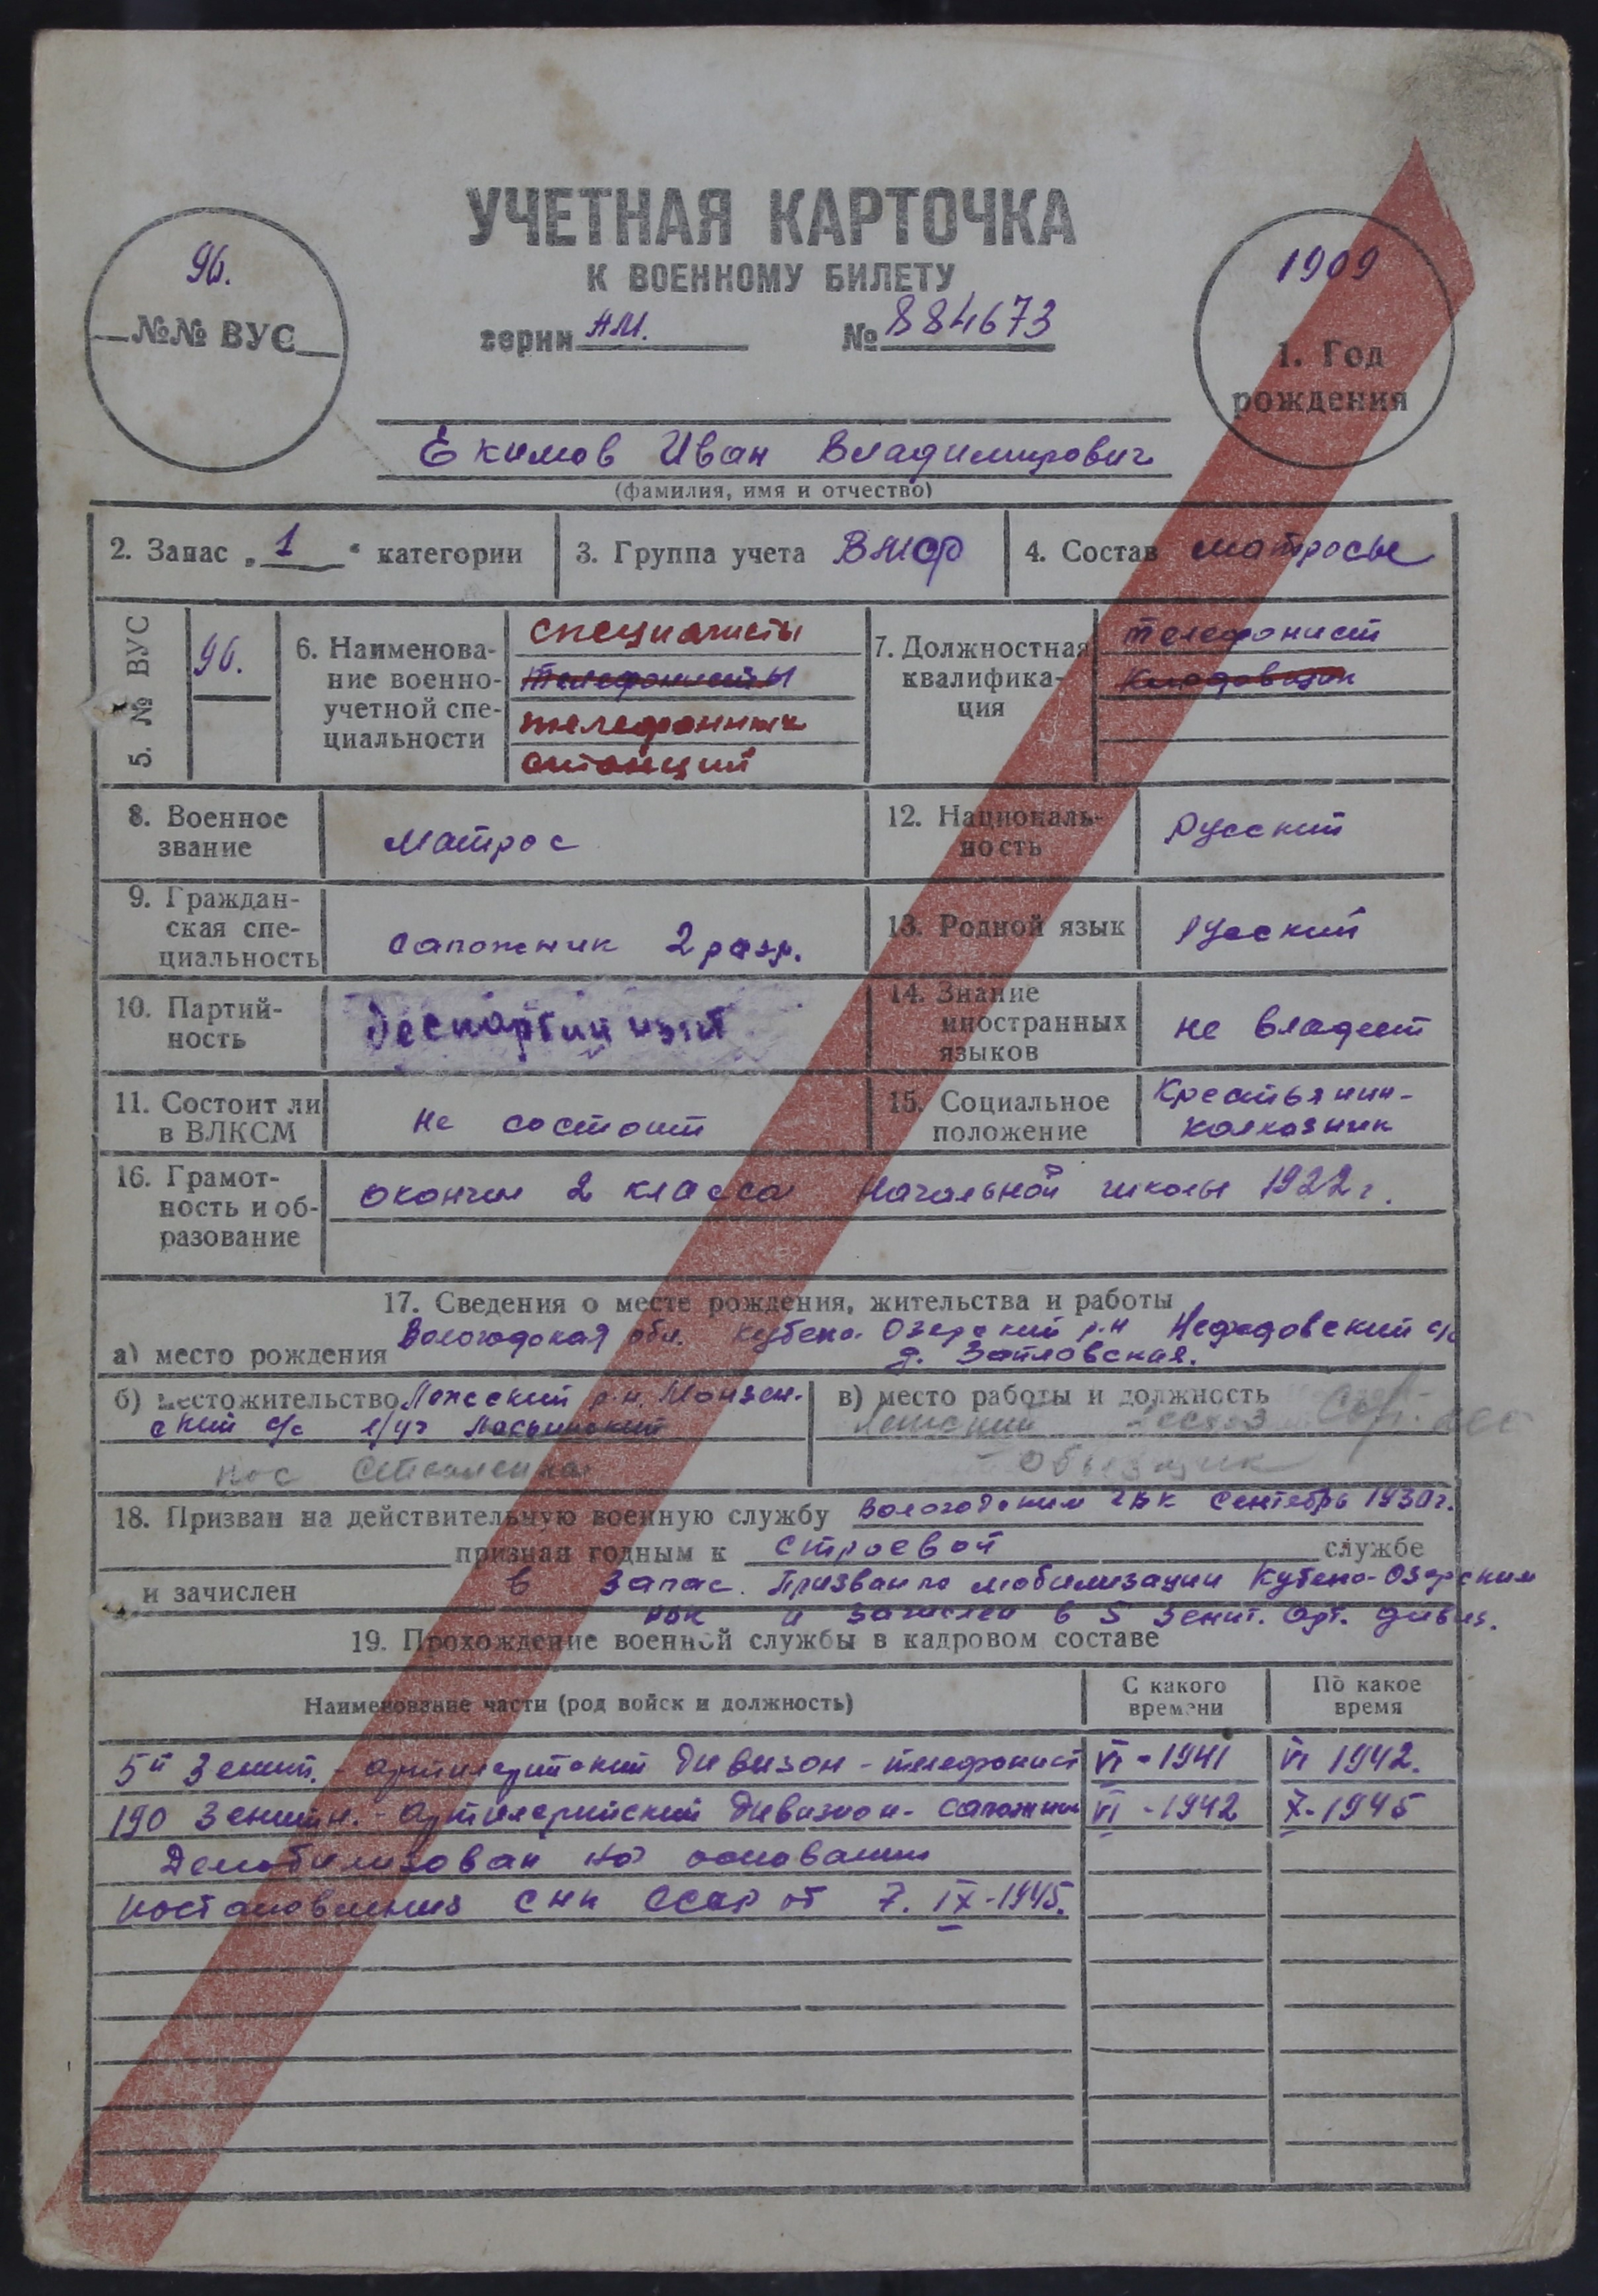 УЧЕТНАЯ КАРТОЧКА
К ВОЕННОМУ БИЛЕТУ
серии АМ. № 884673
96.
№№ ВУС
1909
1. Год
рождения
Екимов Иван Владимирович
(фамилия, имя и отчество)
2. Запас „1“ категории
3. Группа учета ВМФ
4. Состав матросы
5. № ВУС
96.
6. Наименова-
ние военно-
учетной спе-
циальности
специалисты
телефонисты
телефонных
станций
7. Должностная
квалифика-
ция
телефонист
кладовщик
8. Военное
звание
матрос
12. Националь-
ность
Русский
9. Граждан-
ская спе-
циальность
сапожник 2 разр.
13. Родной язык
русский
10. Партий-
ность
беспартийный
14. Знание
иностранных
языков
не владеет
11. Состоит ли
в ВЛКСМ
не состоит
15. Социальное
положение
Крестьянин-
колхозник
16. Грамот-
ность и об-
разование
окончил 2 класса начальной школы 1922 г.
17. Сведения о месте рождения, жительства и работы
Вологодская обл. Кубено-Озерский р-н Нефедовский с/с
а) место рождения
б) местожительство Лежский р-н, Монзен-
ский с/с л/уч
пос
в) место работы и должность
лесхоз
объездчик
18. Призван на действительную военную службу Вологодским ГВК Сентябрь 1930 г.
признан годным к строевой службе
и зачислен в запас. Призван по мобилизации Кубено-Озерским
и зачислен в 5 зенит. арт. дивиз.
19. Прохождение военной службы в кадровом составе
Наименование части (род войск и должность)
С какого
времени
По какое
время
5й Зенит.-артилерийский дивизон - телефонист VI - 1941 VI 1942.
190 Зенитн.-артилерийский дивизион - сапожник VI - 1942 X - 1945
Демобилизован на основании
постановления СНК СССР от 7. IX - 1945.